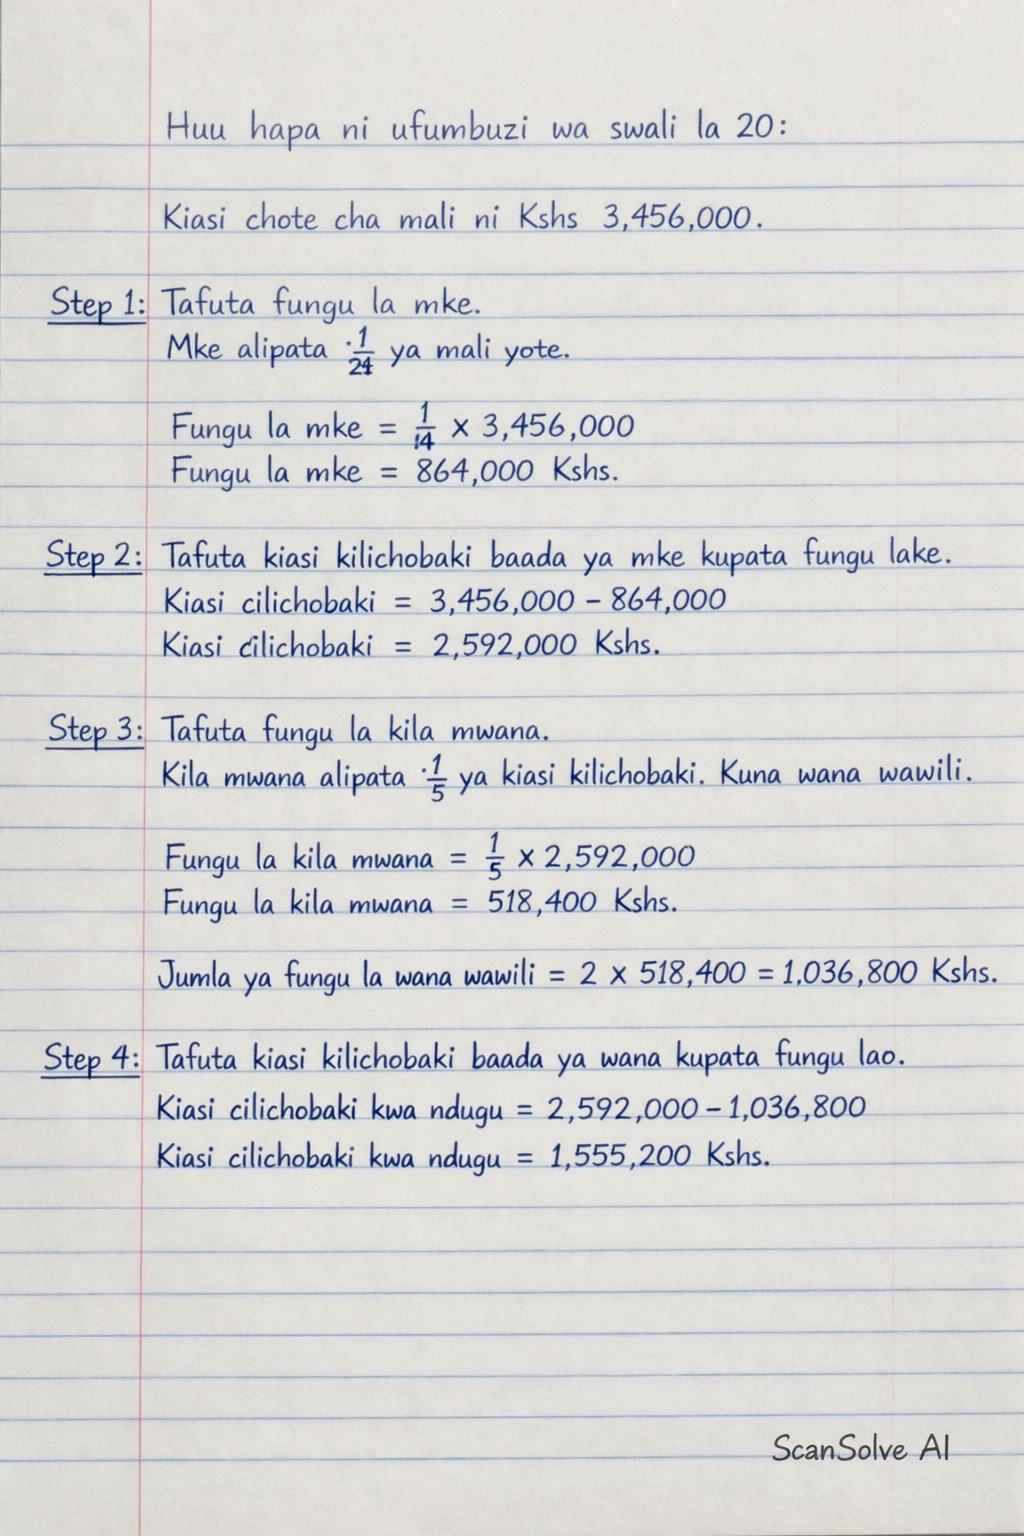 Huu hapa ni ufumbuzi wa swali la 20:
Kiasi chote cha mali ni Kshs 3,456,000.
Step 1: Tafuta fungu la mke.
Mke alipata 1/24 ya mali yote.
Fungu la mke = 1/14 × 3,456,000
Fungu la mke = 864,000 Kshs.
Step 2: Tafuta kiasi kilichobaki baada ya mke kupata fungu lake.
Kiasi cilichobaki = 3,456,000 – 864,000
Kiasi cilichobaki = 2,592,000 Kshs.
Step 3: Tafuta fungu la kila mwana.
Kila mwana alipata 1/5 ya kiasi kilichobaki. Kuna wana wawili.
Fungu la kila mwana = 1/5 × 2,592,000
Fungu la kila mwana = 518,400 Kshs.
Jumla ya fungu la wana wawili = 2 × 518,400 = 1,036,800 Kshs.
Step 4: Tafuta kiasi kilichobaki baada ya wana kupata fungu lao.
Kiasi cilichobaki kwa ndugu = 2,592,000 – 1,036,800
Kiasi cilichobaki kwa ndugu = 1,555,200 Kshs.
ScanSolve AI